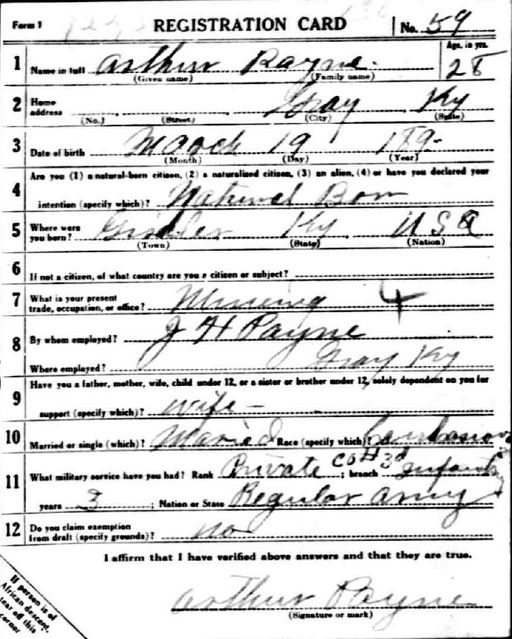 Form 1 REGISTRATION CARD No. 59
1 Name in full Arthur Payne. Age, in yrs. 28
(Given name) (Family name)
2 Home address Gray Ky
(No.) (Street) (City) (State)
3 Date of birth March 19 189-
(Month) (Day) (Year)
Are you (1) a natural-born citizen, (2) a naturalized citizen, (3) an alien, (4) or have you declared your
4 intention (specify which)? Natural Born
5 Where were you born? Ky USA
(Town) (State) (Nation)
6 If not a citizen, of what country are you a citizen or subject?
7 What is your present trade, occupation, or office? Mining 4
8 By whom employed? J H Payne
Where employed? Gray Ky
9 Have you a father, mother, wife, child under 12, or a sister or brother under 12, solely dependent on you for
support (specify which)? wife -
10 Married or single (which)? Maried Race (specify which)?
11 What military service have you had? Rank Private ; branch Infantry
years 3 ; Nation or State Regular Army
12 Do you claim exemption from draft (specify grounds)? no
I affirm that I have verified above answers and that they are true.
Arthur Payne
(Signature or mark)
If person is of
African descent,
tear off this
corner